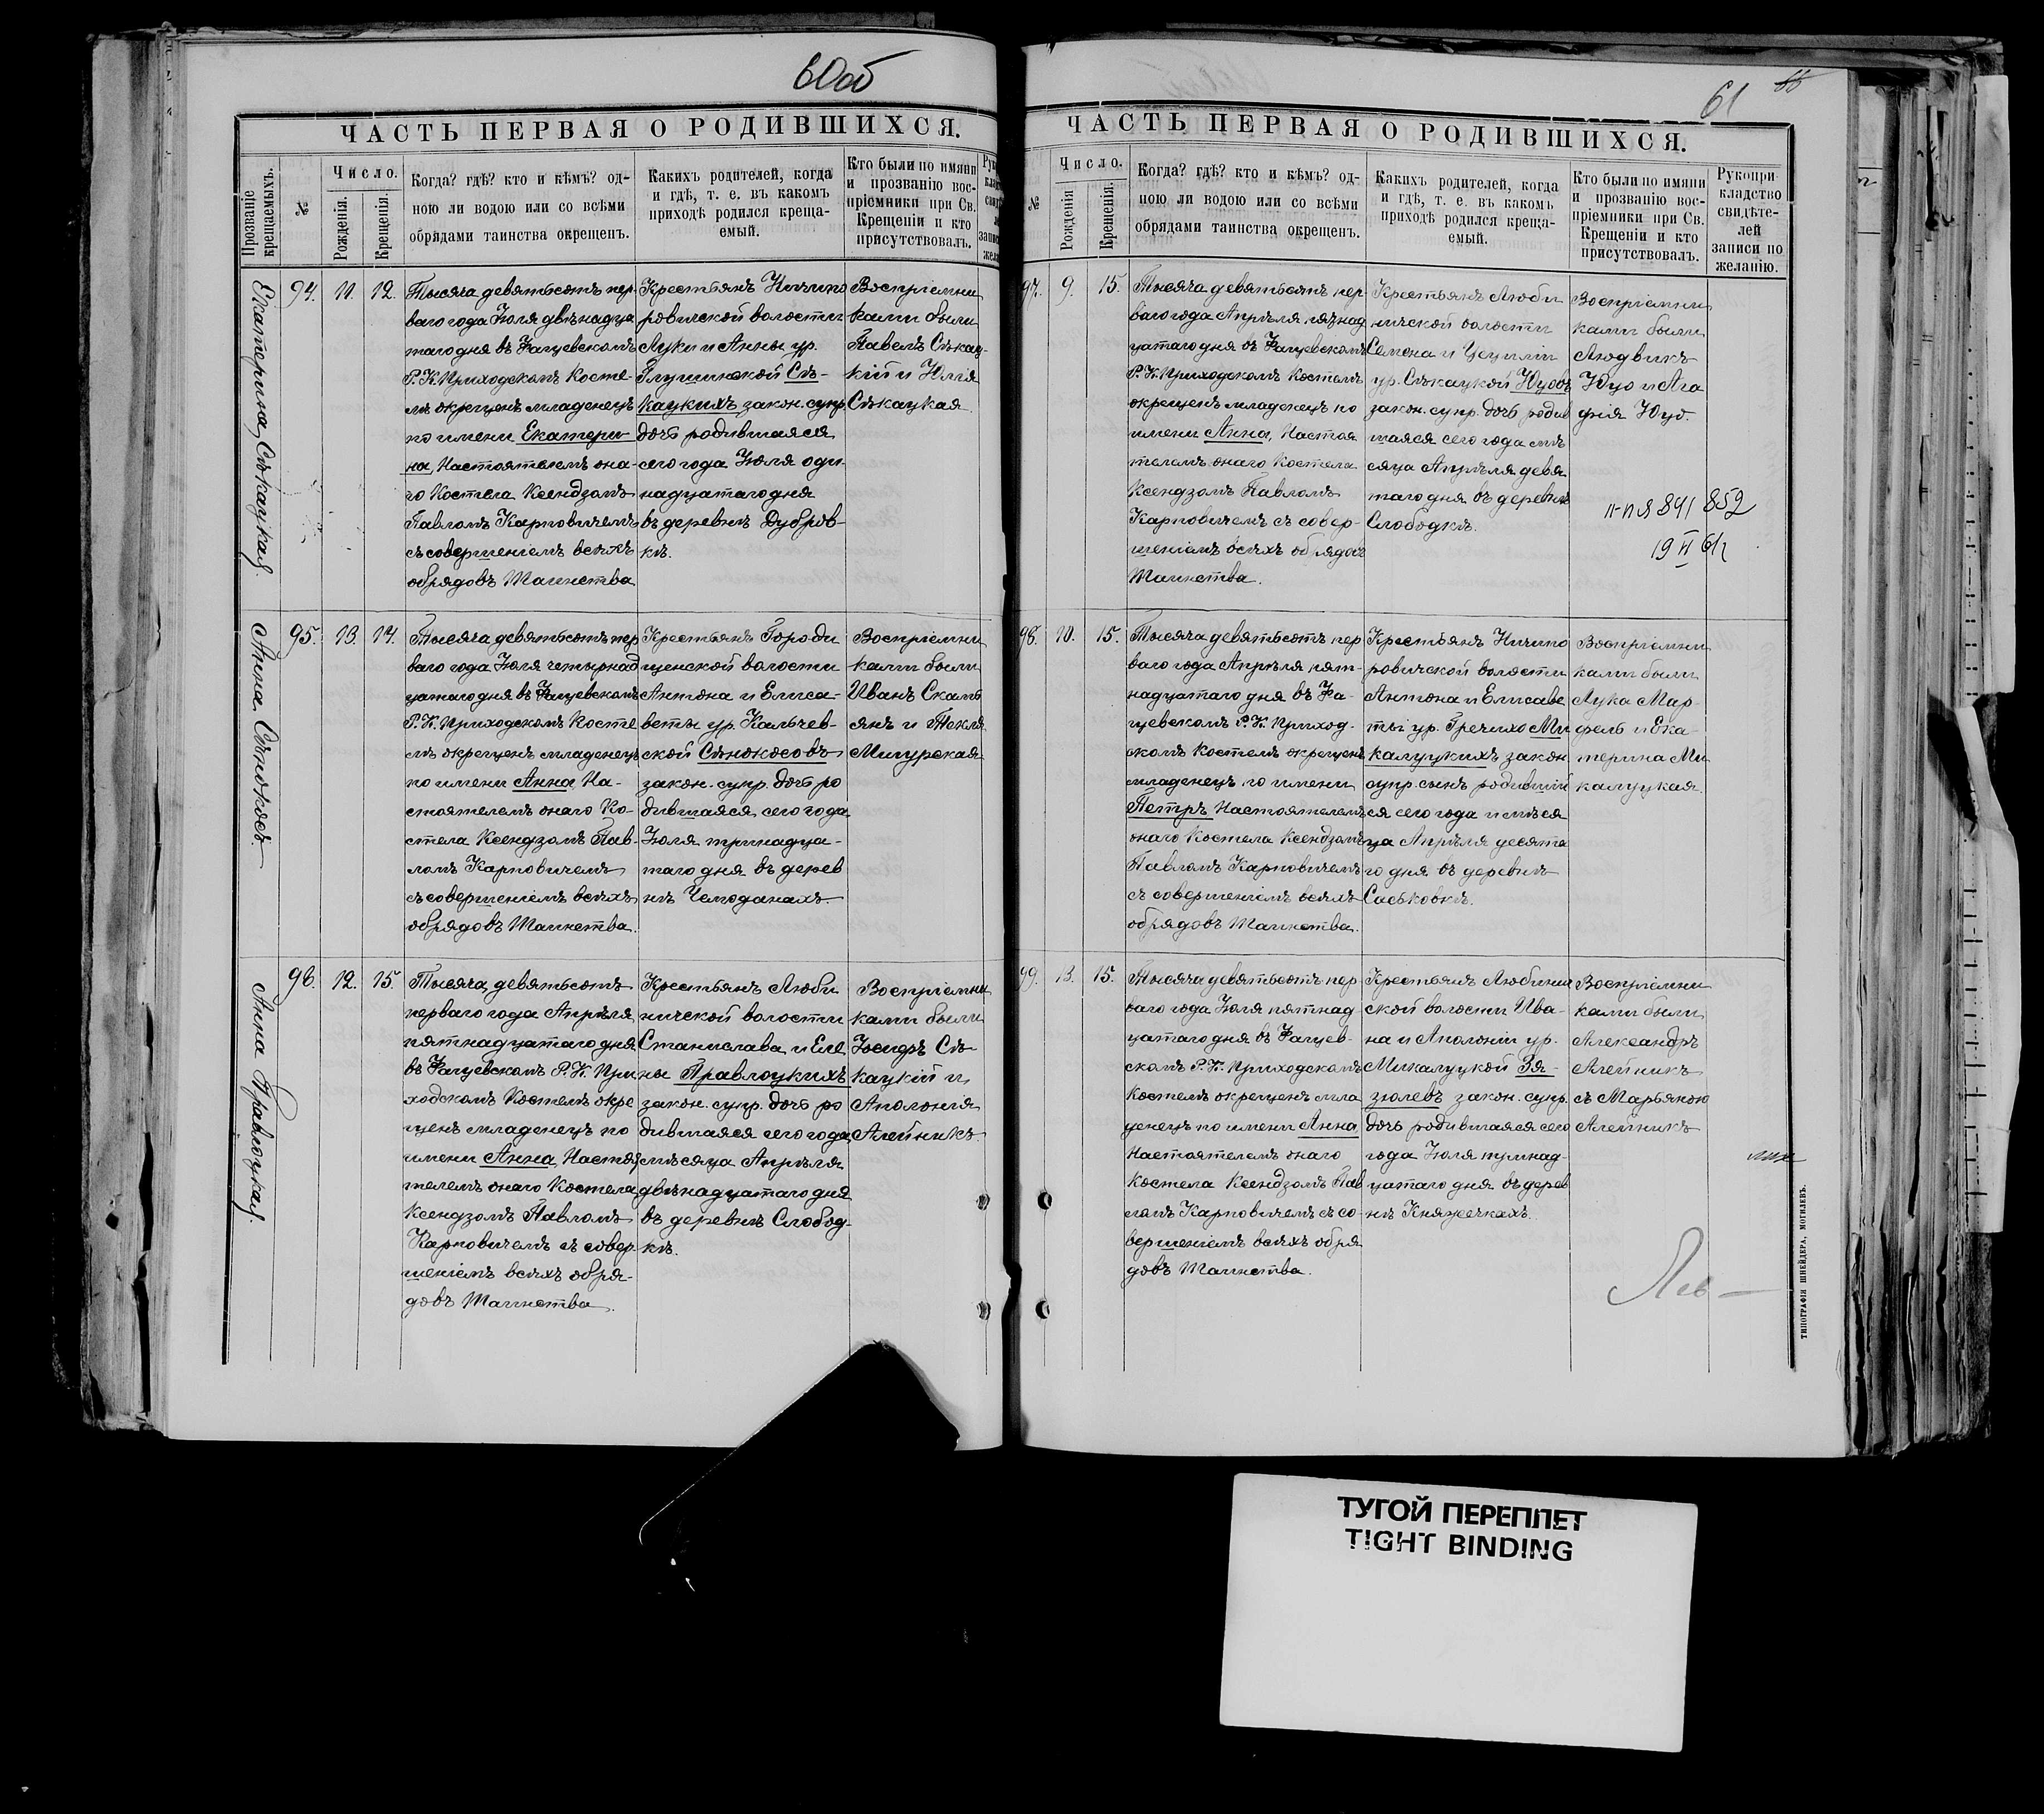 60об
ЧАСТЬ ПЕРВАЯ О РОДИВШИХСЯ.
Прозваніе крещаемыхъ.
№
Число.
Рожденія.
Крещенія.
Когда? гдѣ? кто и кѣмъ? од-
ною ли водою или со всѣми
обрядами таинства окрещенъ.
Какихъ родителей, когда
и гдѣ, т. е. въ какомъ
приходѣ родился креща-
емый.
Кто были по имяни
и прозванію вос-
пріемники при Св.
Крещеніи и кто
присутствовалъ.
Екатерина Сѣкацкая.
94. 11. 12.
Тысяча девятьсотъ пер-
ваго года Іюля двѣнадца
таго дня въ Фащевскомъ
Р. К. Приходскомъ Косте-
лѣ окрещенъ младенецъ
по имени Екатери-
на, Настоятелемъ она-
го Костела Ксендзомъ
Павломъ Карповичемъ
съ совершеніемъ всѣхъ
обрядовъ Таинства
Крестьянъ Ничипо
ровичской волости
Луки и Анны ур.
Глушинской Сѣ-
кацкихъ закон. супр.
дочь родившаяся
сего года Іюля оди-
надцатаго дня
въ деревнѣ Дубров-
кѣ.
Воспріемни
ками были
Павелъ Сѣкац-
кій и Юлія
Сѣкацкая
Анна Сѣнокосъ.
95. 13. 14.
Тысяча девятьсотъ пер
ваго года Іюля четырнад
цатаго дня въ Фащевскомъ
Р. К. Приходскомъ Косте
лѣ окрещенъ младенецъ
по имени Анна На-
стоятелемъ онаго Ко-
стела Ксендзомъ Пав-
ломъ Карповичемъ
съ совершеніемъ всѣхъ
обрядовъ Таинства.
Крестьянъ Городи
щенской волости
Антона и Елиса-
веты ур. Кальчев-
ской Сѣнокосовъ
закон. супр. дочь ро
дившаяся сего года
Іюля тринадца-
таго дня въ дерев
нѣ Чемоданахъ.
Воспріемни
ками были
Иванъ Скамь
янъ и Текля
Мигурская
Анна Правлоцкая.
96. 12. 15.
Тысяча девятьсотъ
перваго года Апрѣля
пятнадцатаго дня
въ Фащевскомъ Р. К. При
ходскомъ Костелѣ окре
щенъ младенецъ по
имени Анна, Настоя
телемъ онаго Костела
Ксендзомъ Павломъ
Карповичемъ съ совер-
шеніемъ всѣхъ обря-
довъ Таинства.
Крестьянъ Люби
ничской волости
Станислава и Еле
ны Правлоцкихъ
закон. супр. дочь ро
дившаяся сего года
мѣсяца Апрѣля
двѣнадцатаго дня
въ деревнѣ Слобод-
кѣ.
Воспріемни
ками были
Іосифъ Сѣ-
кацкій и
Аполонія
Алейникъ
61
ЧАСТЬ ПЕРВАЯ О РОДИВШИХСЯ.
№
Число.
Рожденія
Крещенія.
Когда? гдѣ? кто и кѣмъ? од-
ною ли водою или со всѣми
обрядами таинства окрещенъ.
Какихъ родителей, когда
и гдѣ, т. е. въ какомъ
приходѣ родился креща-
емый.
Кто были по имяни
и прозванію вос-
пріемники при Св.
Крещеніи и кто
присутствовалъ.
Рукопри-
кладство
свидѣте-
лей
записи по
желанію.
97. 9. 15.
Тысяча девятьсотъ пер-
ваго года Апрѣля пятнад
цатаго дня въ Фащевскомъ
Р. К. Приходскомъ Костелѣ
окрещенъ младенецъ по
имени Анна, Настоя
телемъ онаго Костела
Ксендзомъ Павломъ
Карповичемъ съ совер-
шеніемъ всѣхъ обрядовъ
Таинства.
Крестьянъ Люби
ничской волости
Семена и Цециліи
ур. Сѣкацкой Юцовъ
закон. супр. дочь родив
шаяся сего года мѣ
сяца Апрѣля девя
таго дня въ деревнѣ
Слободкѣ.
Воспріемни
ками были
Людвикъ
Юцо и Ага
фія Юцо.
852
98. 10. 15.
Тысяча девятьсотъ пер
ваго года Апрѣля пят-
надцатаго дня въ Фа-
щевскомъ Р. К. Приход-
скомъ Костелѣ окрещенъ
младенецъ по имени
Петръ Настоятелемъ
онаго Костела Ксендзомъ
Павломъ Карповичемъ
съ совершеніемъ всѣхъ
обрядовъ Таинства.
Крестьянъ Ничипо
ровичской волости
Антона и Елисаве
ты ур. Гречихо Ми
калуцкихъ закон.
супр. сынъ родившій
ся сего года и мѣся
ца Апрѣля десята
го дня въ деревнѣ
Саськовкѣ.
Воспріемни
ками были
Лука Мар-
фель и Ека-
терина Ми
калуцкая.
99. 13. 15.
Тысяча девятьсотъ пер-
ваго года Іюля пятнад
цатаго дня въ Фащев-
скомъ Р. К. Приходскомъ
Костелѣ окрещенъ мла
денецъ по имени Анна
Настоятелемъ онаго
Костела Ксендзомъ Пав
ломъ Карповичемъ съ со-
вершеніемъ всѣхъ обря
довъ Таинства.
Крестьянъ Любинич
ской волости Ива-
на и Аполоніи ур.
Микалуцкой Зя-
зюлевъ закон. супр.
дочь родившаяся сего
года Іюля тринад-
цатаго дня въ дерев
нѣ Княжечкахъ.
Воспріемни
ками были
Александръ
Алейникъ
съ Марьяною
Алейникъ
ТИПОГРАФІЯ ШНЕЙДЕРА, МОГИЛЕВЪ.
ТУГОЙ ПЕРЕПЛЕТ
TIGHT BINDING